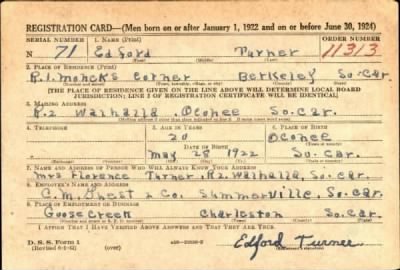 REGISTRATION CARD—(Men born on or after January 1, 1922 and on or before June 30, 1924)
SERIAL NUMBER 1. NAME (Print) ORDER NUMBER
N 71 Edford Turner 11313
(First) (Middle) (Last)
2. PLACE OF RESIDENCE (Print)
R.1. Moncks Corner Berkeley So. Car.
(Number and street) (Town, township, village, or city) (County) (State)
[THE PLACE OF RESIDENCE GIVEN ON THE LINE ABOVE WILL DETERMINE LOCAL BOARD
JURISDICTION; LINE 2 OF REGISTRATION CERTIFICATE WILL BE IDENTICAL]
3. MAILING ADDRESS
R.2 Walhalla, Oconee So. Car.
4. TELEPHONE 5. AGE IN YEARS 6. PLACE OF BIRTH
20 Oconee
DATE OF BIRTH
May 28 1922 So. Car.
7. NAME AND ADDRESS OF PERSON WHO WILL ALWAYS KNOW YOUR ADDRESS
Mrs Florence Turner, R.2. Walhalla, So. Car.
8. EMPLOYER'S NAME AND ADDRESS
C. M. Guest & Co. Summerville, So. Car.
9. PLACE OF EMPLOYMENT OR BUSINESS
Goose Creek Charleston So. Car.
I AFFIRM THAT I HAVE VERIFIED ABOVE ANSWERS AND THAT THEY ARE TRUE.
D. S. S. Form 1
(Revised 6-9-42) (over) Edford Turner